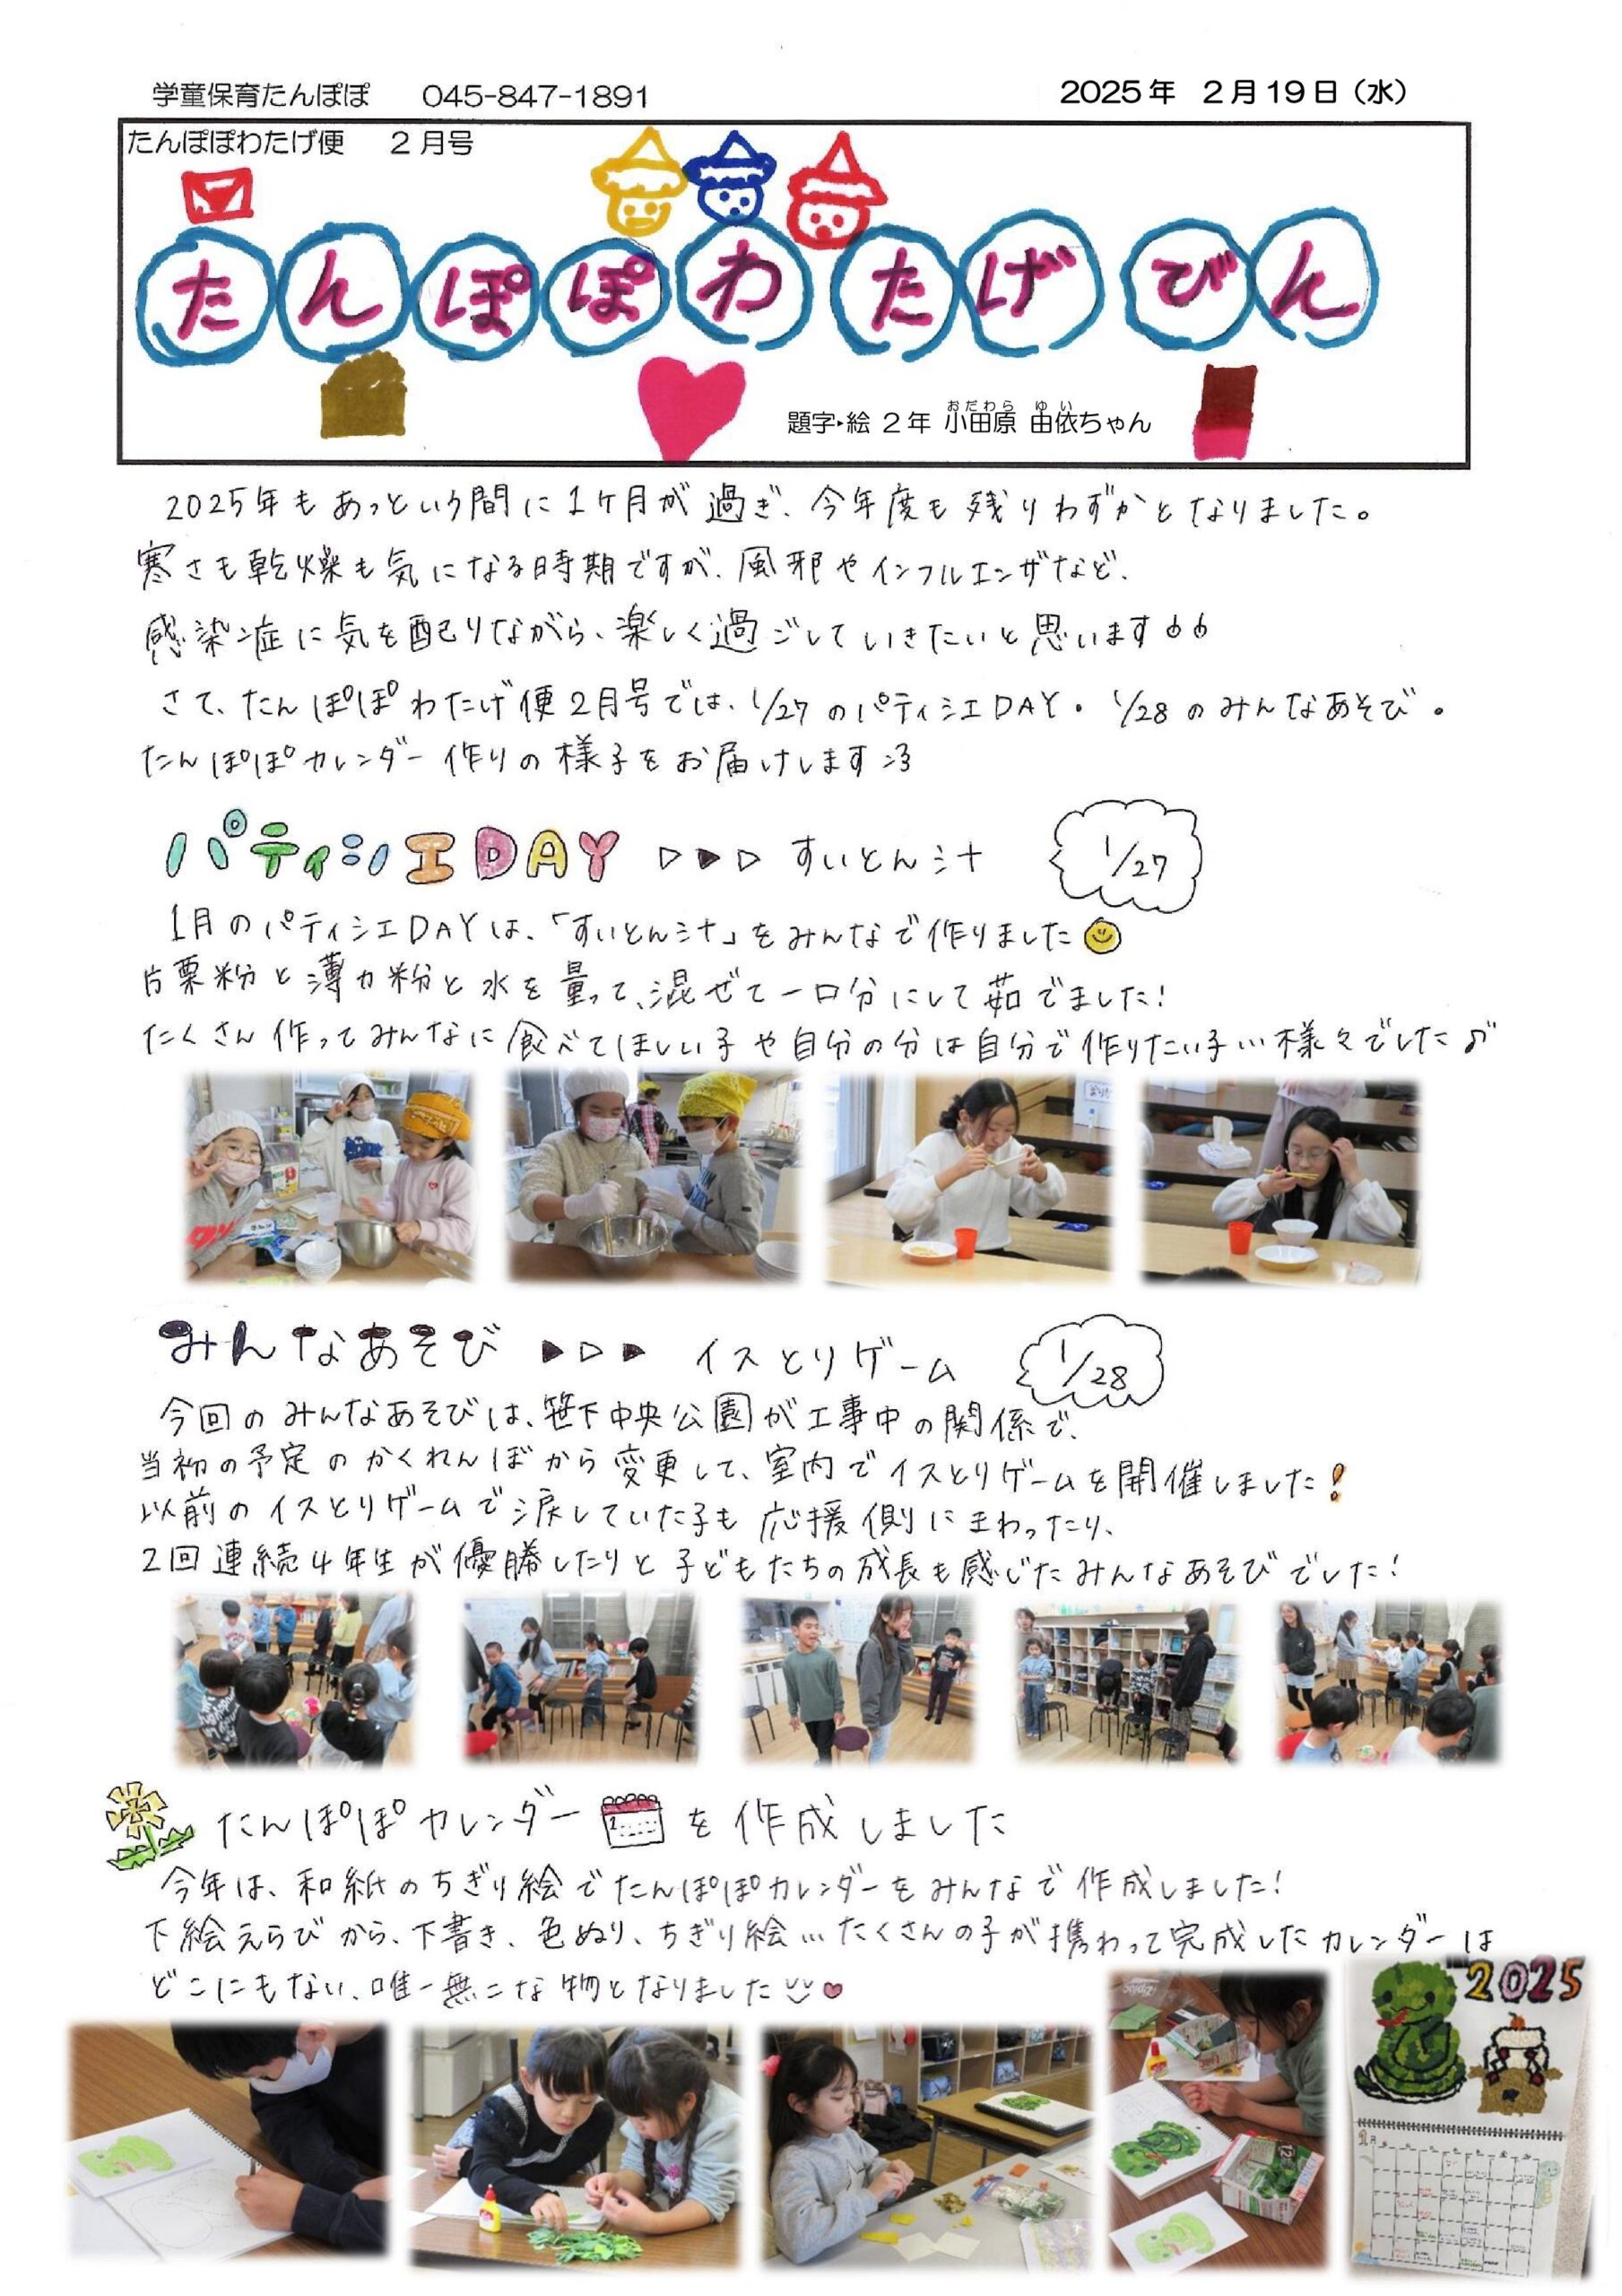 学童保育たんぽぽ 045-847-1891
2025年 2月19日（水）
たんぽぽわたげ便 2月号
たんぽぽわたげびん
題字・絵 2年 小田原 由依ちゃん
おだわら ゆい
2025年もあっという間に1ヶ月が過ぎ、今年度も残りわずかとなりました。
寒さも乾燥も気になる時期ですが、風邪やインフルエンザなど、
感染症に気を配りながら、楽しく過ごしていきたいと思います
さて、たんぽぽわたげ便2月号では、1/27のパティシエDAY・1/28のみんなあそび・
たんぽぽカレンダー作りの様子をお届けします
パティシエDAY ▷▶▷ すいとん汁 1/27
1月のパティシエDAYは、「すいとん汁」をみんなで作りました
片栗粉と薄力粉と水を量って、混ぜて一口分にして茹でました!
たくさん作ってみんなに食べてほしい子や自分の分は自分で作りたい子…様々でした♪
みんなあそび ▶▷▶ イスとりゲーム 1/28
今回のみんなあそびは、笹下中央公園が工事中の関係で、
当初の予定のかくれんぼから変更して、室内でイスとりゲームを開催しました!
以前のイスとりゲームで涙していた子も応援側にまわったり、
2回連続4年生が優勝したりと子どもたちの成長も感じたみんなあそびでした!
たんぽぽカレンダーを作成しました
今年は、和紙のちぎり絵でたんぽぽカレンダーをみんなで作成しました!
下絵えらびから、下書き、色ぬり、ちぎり絵…たくさんの子が携わって完成したカレンダーは
どこにもない、唯一無二な物となりました
2025